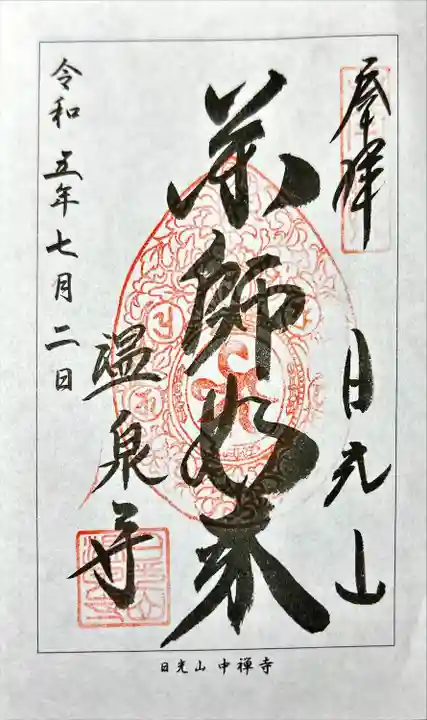 奉拝
日光山
薬師如来
温泉寺
令和五年七月二日
日光山中禅寺